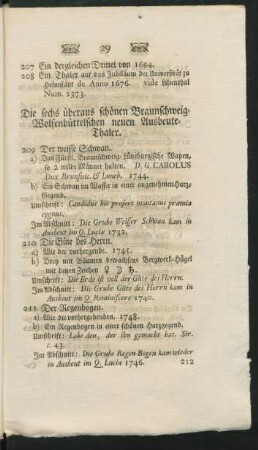 29
207 Ein dergleichen Drittel von 1694.
208 Ein Thaler auf das Jubiläum der Universität zu
Helmstädt de Anno 1676. vide Lilienthal
Num. 2373.
Die sechs überaus schönen Braunschweig-
Wolfenbüttelschen neuen Ausbeute-
Thaler.
209 Der weisse Schwan.
a) Das Fürstl. Braunschweig-Lüneburgische Wapen,
so 2 wilde Männer halten. D. G. CAROLUS
Dux Brunsvic. & Luneb. 1744.
b) Ein Schwan im Wasser in einer angenehmen Harz-
Gegend.
Umschrift: Candidus hic profert montanus præmia
cygnus.
Im Abschnitt: Die Grube Weisser Schwan kam in
Ausbeut im Q. Lucia 1732.
210 Die Güte des Herrn.
a) Wie der vorhergende. 1745.
b) Drey mit Bäumen bewachsene Bergwerk-Hügel
mit denen Zeichen ♀ ☽ ♄.
Umschrift: Die Erde ist voll der Güte des Herrn.
Im Abschnitt: Die Grube Güte des Herrn kam in
Ausbeut im Q. Reminiscere 1740.
211 Der Regenbogen.
a) Wie die vorhergehenden. 1748.
b) Ein Regenbogen in einer schönen Harzgegend.
Umschrift: Lobe den, der ihn gemacht hat. Sir.
c. 43.
Im Abschnitt: Die Grube Regen-Bogen kam wieder
in Ausbeut im Q. Lucia 1746.
212